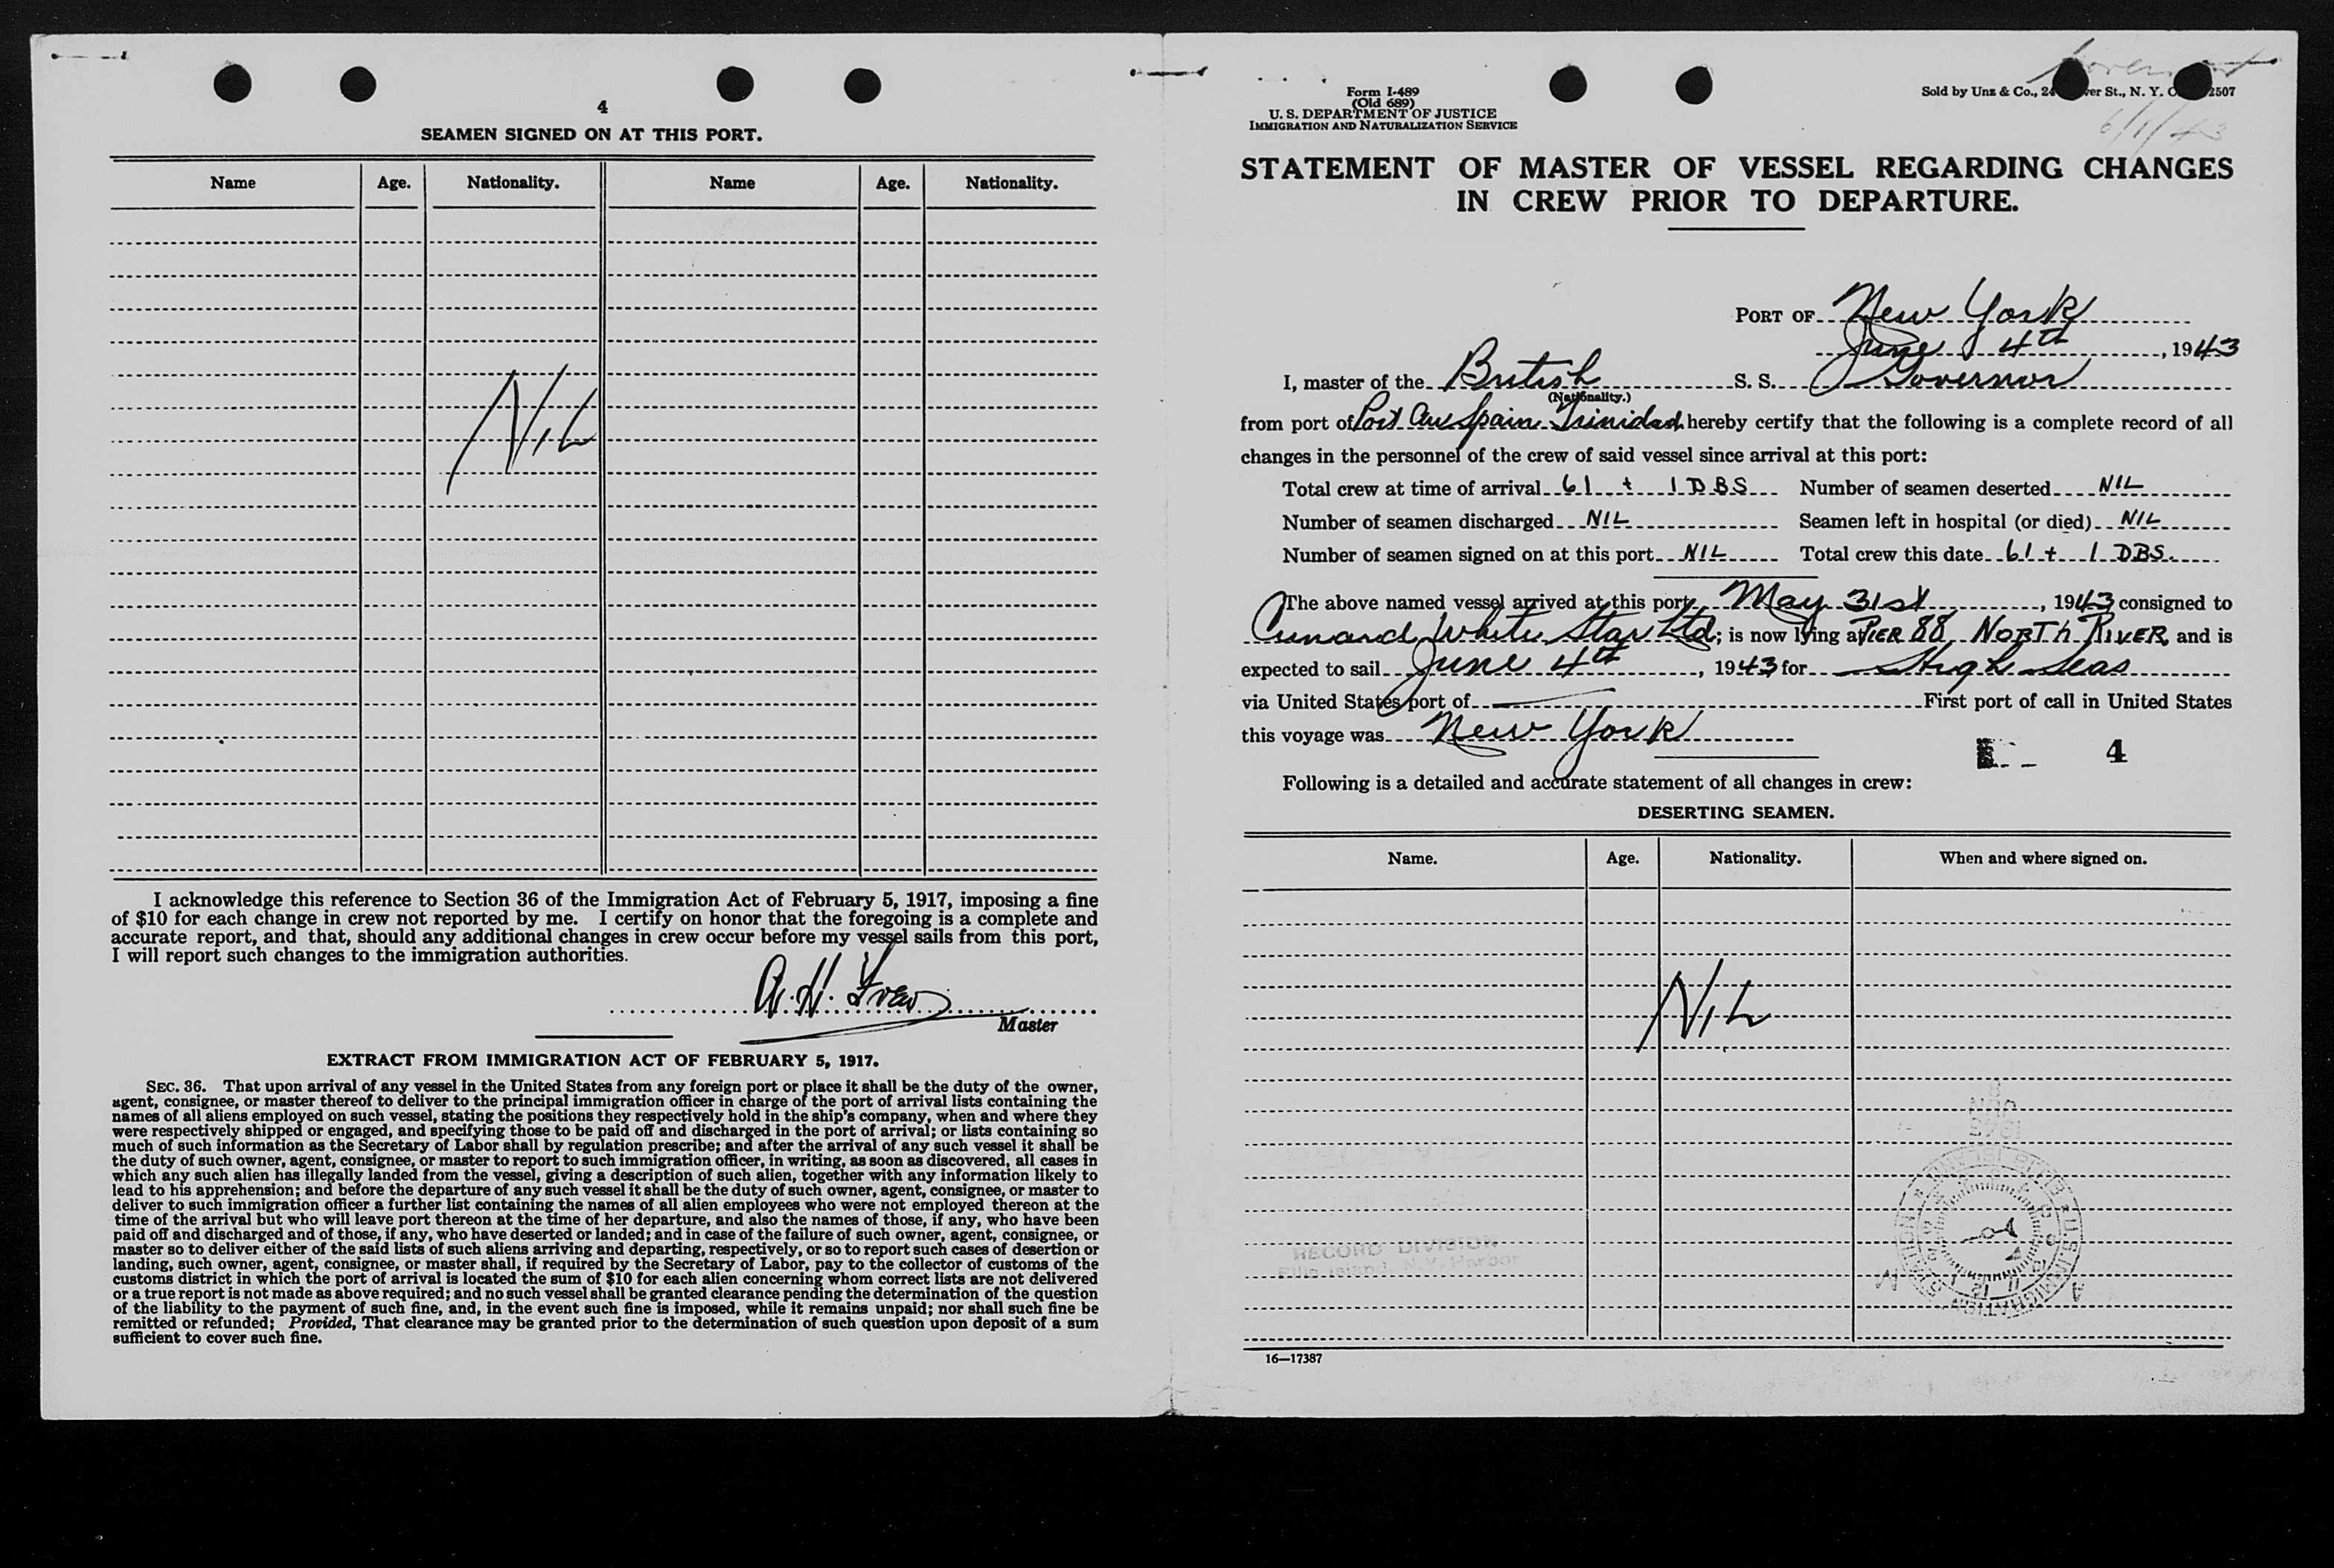 4
SEAMEN SIGNED ON AT THIS PORT.
Name Age. Nationality. Name Age. Nationality.
NiL
I acknowledge this reference to Section 36 of the Immigration Act of February 5, 1917, imposing a fine
of $10 for each change in crew not reported by me. I certify on honor that the foregoing is a complete and
accurate report, and that, should any additional changes in crew occur before my vessel sails from this port,
I will report such changes to the immigration authorities.
A. H. Frew
Master
EXTRACT FROM IMMIGRATION ACT OF FEBRUARY 5, 1917.
SEC. 36. That upon arrival of any vessel in the United States from any foreign port or place it shall be the duty of the owner,
agent, consignee, or master thereof to deliver to the principal immigration officer in charge of the port of arrival lists containing the
names of all aliens employed on such vessel, stating the positions they respectively hold in the ship's company, when and where they
were respectively shipped or engaged, and specifying those to be paid off and discharged in the port of arrival; or lists containing so
much of such information as the Secretary of Labor shall by regulation prescribe; and after the arrival of any such vessel it shall be
the duty of such owner, agent, consignee, or master to report to such immigration officer, in writing, as soon as discovered, all cases in
which any such alien has illegally landed from the vessel, giving a description of such alien, together with any information likely to
lead to his apprehension; and before the departure of any such vessel it shall be the duty of such owner, agent, consignee, or master to
deliver to such immigration officer a further list containing the names of all alien employees who were not employed thereon at the
time of the arrival but who will leave port thereon at the time of her departure, and also the names of those, if any, who have been
paid off and discharged and of those, if any, who have deserted or landed; and in case of the failure of such owner, agent, consignee, or
master so to deliver either of the said lists of such aliens arriving and departing, respectively, or so to report such cases of desertion or
landing, such owner, agent, consignee, or master shall, if required by the Secretary of Labor, pay to the collector of customs of the
customs district in which the port of arrival is located the sum of $10 for each alien concerning whom correct lists are not delivered
or a true report is not made as above required; and no such vessel shall be granted clearance pending the determination of the question
of the liability to the payment of such fine, and, in the event such fine is imposed, while it remains unpaid; nor shall such fine be
remitted or refunded; Provided, That clearance may be granted prior to the determination of such question upon deposit of a sum
sufficient to cover such fine.
Form I-489
(Old 689)
U. S. DEPARTMENT OF JUSTICE
IMMIGRATION AND NATURALIZATION SERVICE
Sold by Unz & Co., 24 St., N. Y. C. 2507
6/1/43
STATEMENT OF MASTER OF VESSEL REGARDING CHANGES
IN CREW PRIOR TO DEPARTURE.
PORT OF New York
June 4th, 1943
I, master of the British S. S. Governor
(Nationality.)
from port of Port au Spain Trinidad hereby certify that the following is a complete record of all
changes in the personnel of the crew of said vessel since arrival at this port:
Total crew at time of arrival 61 + 1 DBS Number of seamen deserted NIL
Number of seamen discharged NIL Seamen left in hospital (or died) NIL
Number of seamen signed on at this port NIL Total crew this date 61 + 1 DBS.
The above named vessel arrived at this port May 31st, 1943 consigned to
Cunard White Star Ltd; is now lying at PIER 88 NORTH RIVER, and is
expected to sail June 4th, 1943 for High Seas
via United States port of — First port of call in United States
this voyage was New York
4
Following is a detailed and accurate statement of all changes in crew:
DESERTING SEAMEN.
Name. Age. Nationality. When and where signed on.
NiL
RECORD DIVISION
Ellis Island, N.Y. Harbor
16—17387